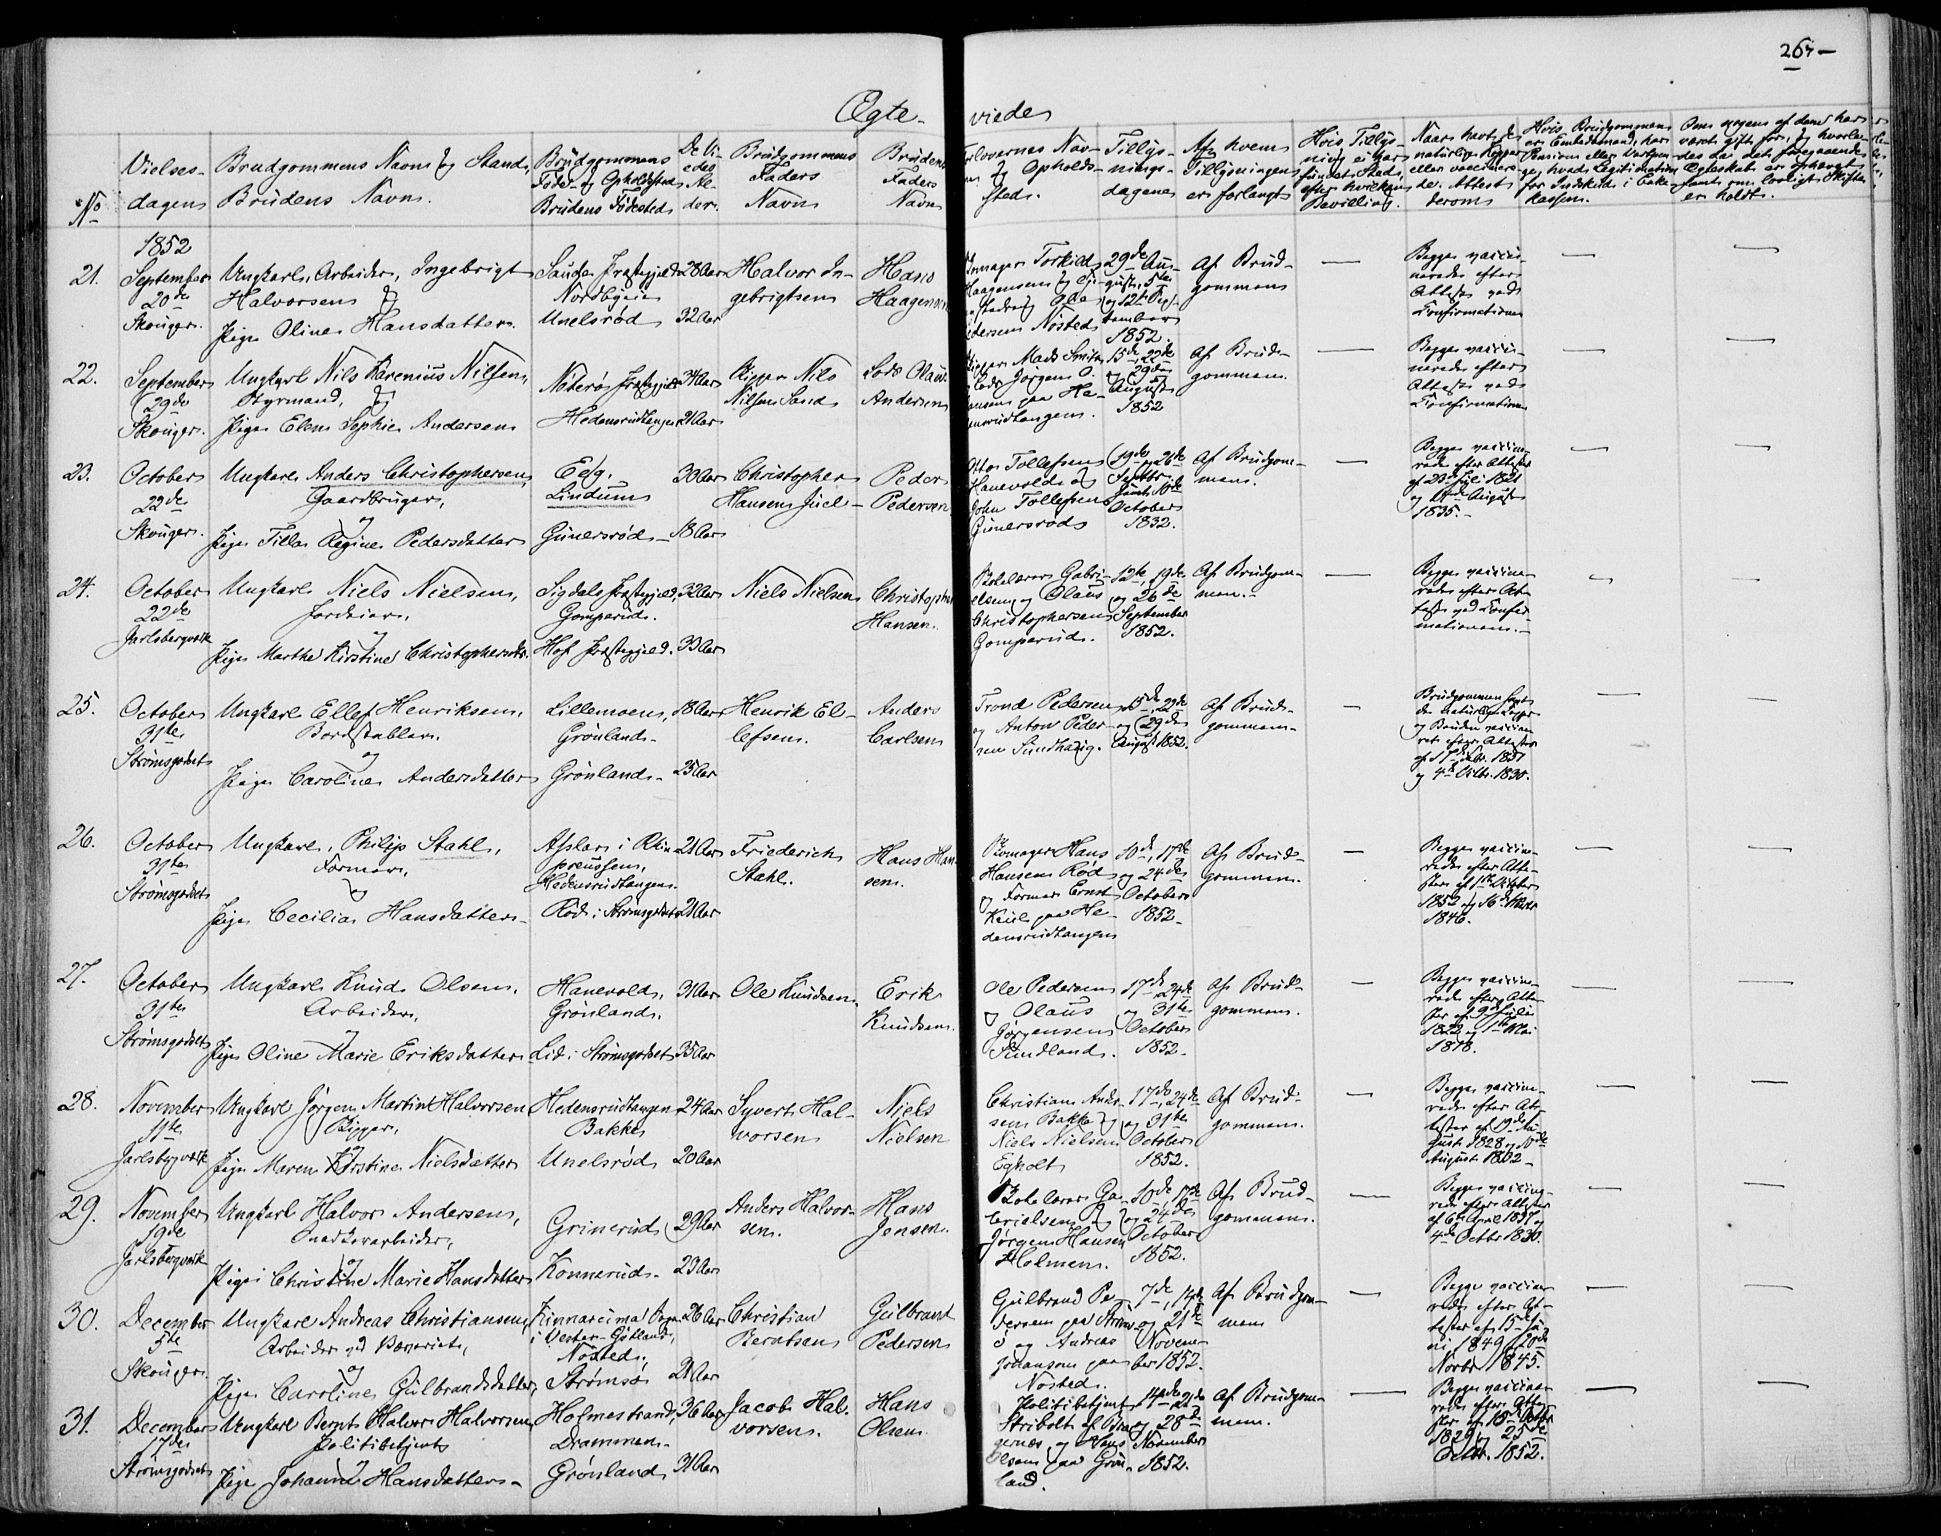 265
Ægte-viede
No
Vielses-
dagen
Brudgommens Navn og Stand,
Brudens Navn.
Brudgommens
Føde- og Opholdssted
Brudens Fødested
De Vi-
edes
Al-
der.
Brudgommens
Faders
Navn
Brudens
Faders
Navn
Forlovernes Nav-
n og Opholds-
sted.
Tillys-
nings-
dagene
Af hvem
Tillysningen
er forlangt
Hvis Tillys-
ning ei har
fundet Sted,
efter hvilken
Bevilling.
Naar havt de
naturlige Kopper
eller vaccinere-
de. Attest
derom
Hvis Brudgommen
er Embedsmand, hans
for Indskud i Enke-
kassen.
Om nogen af dem har
været gift før, og hvorle-
des da det foregaaende
Ægteskab er ophævet
samt om lovligt Skifte
er holdt.
1852
21.
September
20de
Skouger.
Ungkarl, Arbeider, Ingebrigt
Halvorsen
og
Pige Oline Hansdatter.
Sande Præstegjeld
Nordbyeie
Unelsrød
28 Aar
32 Aar
Halvor In-
gebrigtsen
Hans
Haagensen
Torkild
Haagensen og
Nøsted
29de Au-
gust, 5te
og 12te Sep-
tember
1852.
Af Brud-
gommen
Begge vacci-
nerede efter
Attest ved
Confirmation
22.
September
29de
Skouger.
Ungkarl Nils Karenius Nilsen,
Styrmand, og
Pige Elen Sophie Andersen
Nøterø Præstegjeld
Hedensrudtangen
34 Aar
21 Aar
Skipper Nils
Nilsen Sand
Lods Olaus
Andersen
Skipper Mads Smith
Lods Jørgen O.
Hansen paa He-
densrudtangen.
15de, 22de
og 29de
August
1852
Af Brud-
gommen.
Begge vacci-
nerede efter
Attest ved
Confirmation
23.
October
22de
Skouger.
Ungkarl Anders Christophersen,
Gaardbruger,
og
Pige Tilla Regine Pedersdatter
Eeg.
Lindum
Gunersrød
30 Aar
18 Aar
Christopher
Hansen Juel
Peder
Pedersen
Otto Tollefsen
Hanevold og
John Tollefsen
Gunersrød
19de og 26de
Septbr.
Samt 10de
October
1832.
Af Brudgom-
men.
Begge vaccine-
rede efter Attester
af 20de Juli 1821
og August
1835.
24.
October
22de
Jarlsbergværk
Ungkarl Niels Nielsen,
Jordeier,
og
Pige Marthe Kirstine Christophersdtr.
Sigdals Præstegjeld,
Gomperud.
Hof Præstegjeld.
32 Aar
33 Aar
Niels Nielsen
Christopher
Hansen.
Kirkelærer Gabri-
elsen og Olaus
Christophersen
Gomperud.
12te, 19de
og 26de
September
1852.
Af Brudgom-
men.
Begge vaccine-
rede efter At-
test ved Confir-
mationen.
25.
October
31te
Strømsgodset
Ungkarl Ellef Henriksen,
Bordstabler,
og
Pige Caroline Andersdatter
Lillemoen,
Grønland.
Grønland.
18 Aar
23 Aar
Henrik El-
lefsen.
Anders
Carlsen
Trond Pedersen
og Anton Peder-
sen Sundhaug.
15de, 22de
og 29de
August 1852.
Af Brud-
gommen.
Brudgommen havt
de naturlige Kopper
og Bruden vaccine-
ret efter Attester
af 17de Febr. 1837
og 4de Octbr. 1830.
26.
October
31te
Strømsgodset
Ungkarl, Philip Stahl,
Former,
og
Pige Cecilia Hansdatter
Asslar i Rhin-
preussen,
Hedensrudtangen.
Rød i Strømsgodset
21 Aar
21 Aar
Friederich
Stahl.
Hans Han-
sen.
Skomager Hans
Hansen Rød
og Former Ernst
Keil paa He-
densrudtangen
10de, 17de
og 24de
October
1852
Af Brud-
gommen.
Begge vaccine-
rede efter Atte-
ster af 1ste October
1852 og 16de Marts
1846.
27.
October
31te
Strømsgodset
Ungkarl Knud Olsen.
Arbeider,
og
Pige Oline Marie Eriksdatter
Hanevold,
Grønland.
Lid i Strømsgodset
31 Aar
35 Aar
Ole Knudsen
Erik
Knudsen.
Ole Pedersen
og Olaus
Jørgensen
Sundland.
17de, 24de
og 31te
October
1852.
Af Brud-
gommen.
Begge vaccine-
rede efter Atte-
ster af 9de Julii
1822 og 1ste Mai
1818.
28.
November
11te
Jarlsbergværk
Ungkarl Jørgen Martin Halvorsen
Rigger,
og
Pige Maren Kirstine Nielsdatter
Hedensrudtangen
Bakke
Unelsrød
24 Aar
20 Aar
Syvert Hal-
vorsen
Niels
Nielsen
Christian Ander-
sen Bakke og
Niels Nielsen
Egholt
17de, 24de
og 31te
October
1852.
Af Brud-
gommen.
Begge vaccine-
rede efter At-
tester af 19de Au-
gust 1828 og 10de
August 1832
29.
November
19de
Jarlsbergværk
Ungkarl Halvor Andersen,
og
Pige Christine Marie Hansdatter
Grinerud
Konnerud.
29 Aar
23 Aar
Anders Halvor-
sen.
Hans
Jensen.
Kirkelærer Ga-
brielsen og
Jørgen Hansen
Holmen.
10de, 17de
og 24de
October
1852.
Af Brud-
gommen.
Begge vaccine-
rede efter Attester
af 6te April 1837 og
4de Octbr 1830.
30.
December
5te
Skouger.
Ungkarl Andreas Christiansen,
Arbeider ved Bæveriet,
og
Pige Caroline Gulbrandsdatter,
Kinnaruma Sogn
i Vester-Gøtland,
Nøsted,
Strømsø
26 Aar
21 Aar
Christian
Berntsen
Gulbrand
Pedersen
Gulbrand Pe-
dersen paa Strøms-
ø og Andreas
Johansen paa
Nøsted.
7de, 14de
og 21de
Novem-
ber 1852.
Af Brudgom-
men
Begge vaccine-
rede efter At-
tester af 15de Ju-
ni 1849 og 20de
Novbr 1845.
31.
December
17de
Strømsgodset
Ungkarl Bernt Halvor Halvorsen,
Politibetjent
og
Pige Johanne Hansdatter
Holmestrand,
Drammen.
Grønland
36 Aar
31 Aar
Jacob Hal-
vorsen.
Hans
Olsen.
Politibetjent
Stribolt af Brag-
gernæs og Hans
Olsen paa Grøn-
land.
14de, 21de
og 28de
November
1852.
Af Brudgom-
men.
Begge vaccine-
rede efter Atte-
ster af 15de Octbr
1829 og 25de
Octbr. 1852.